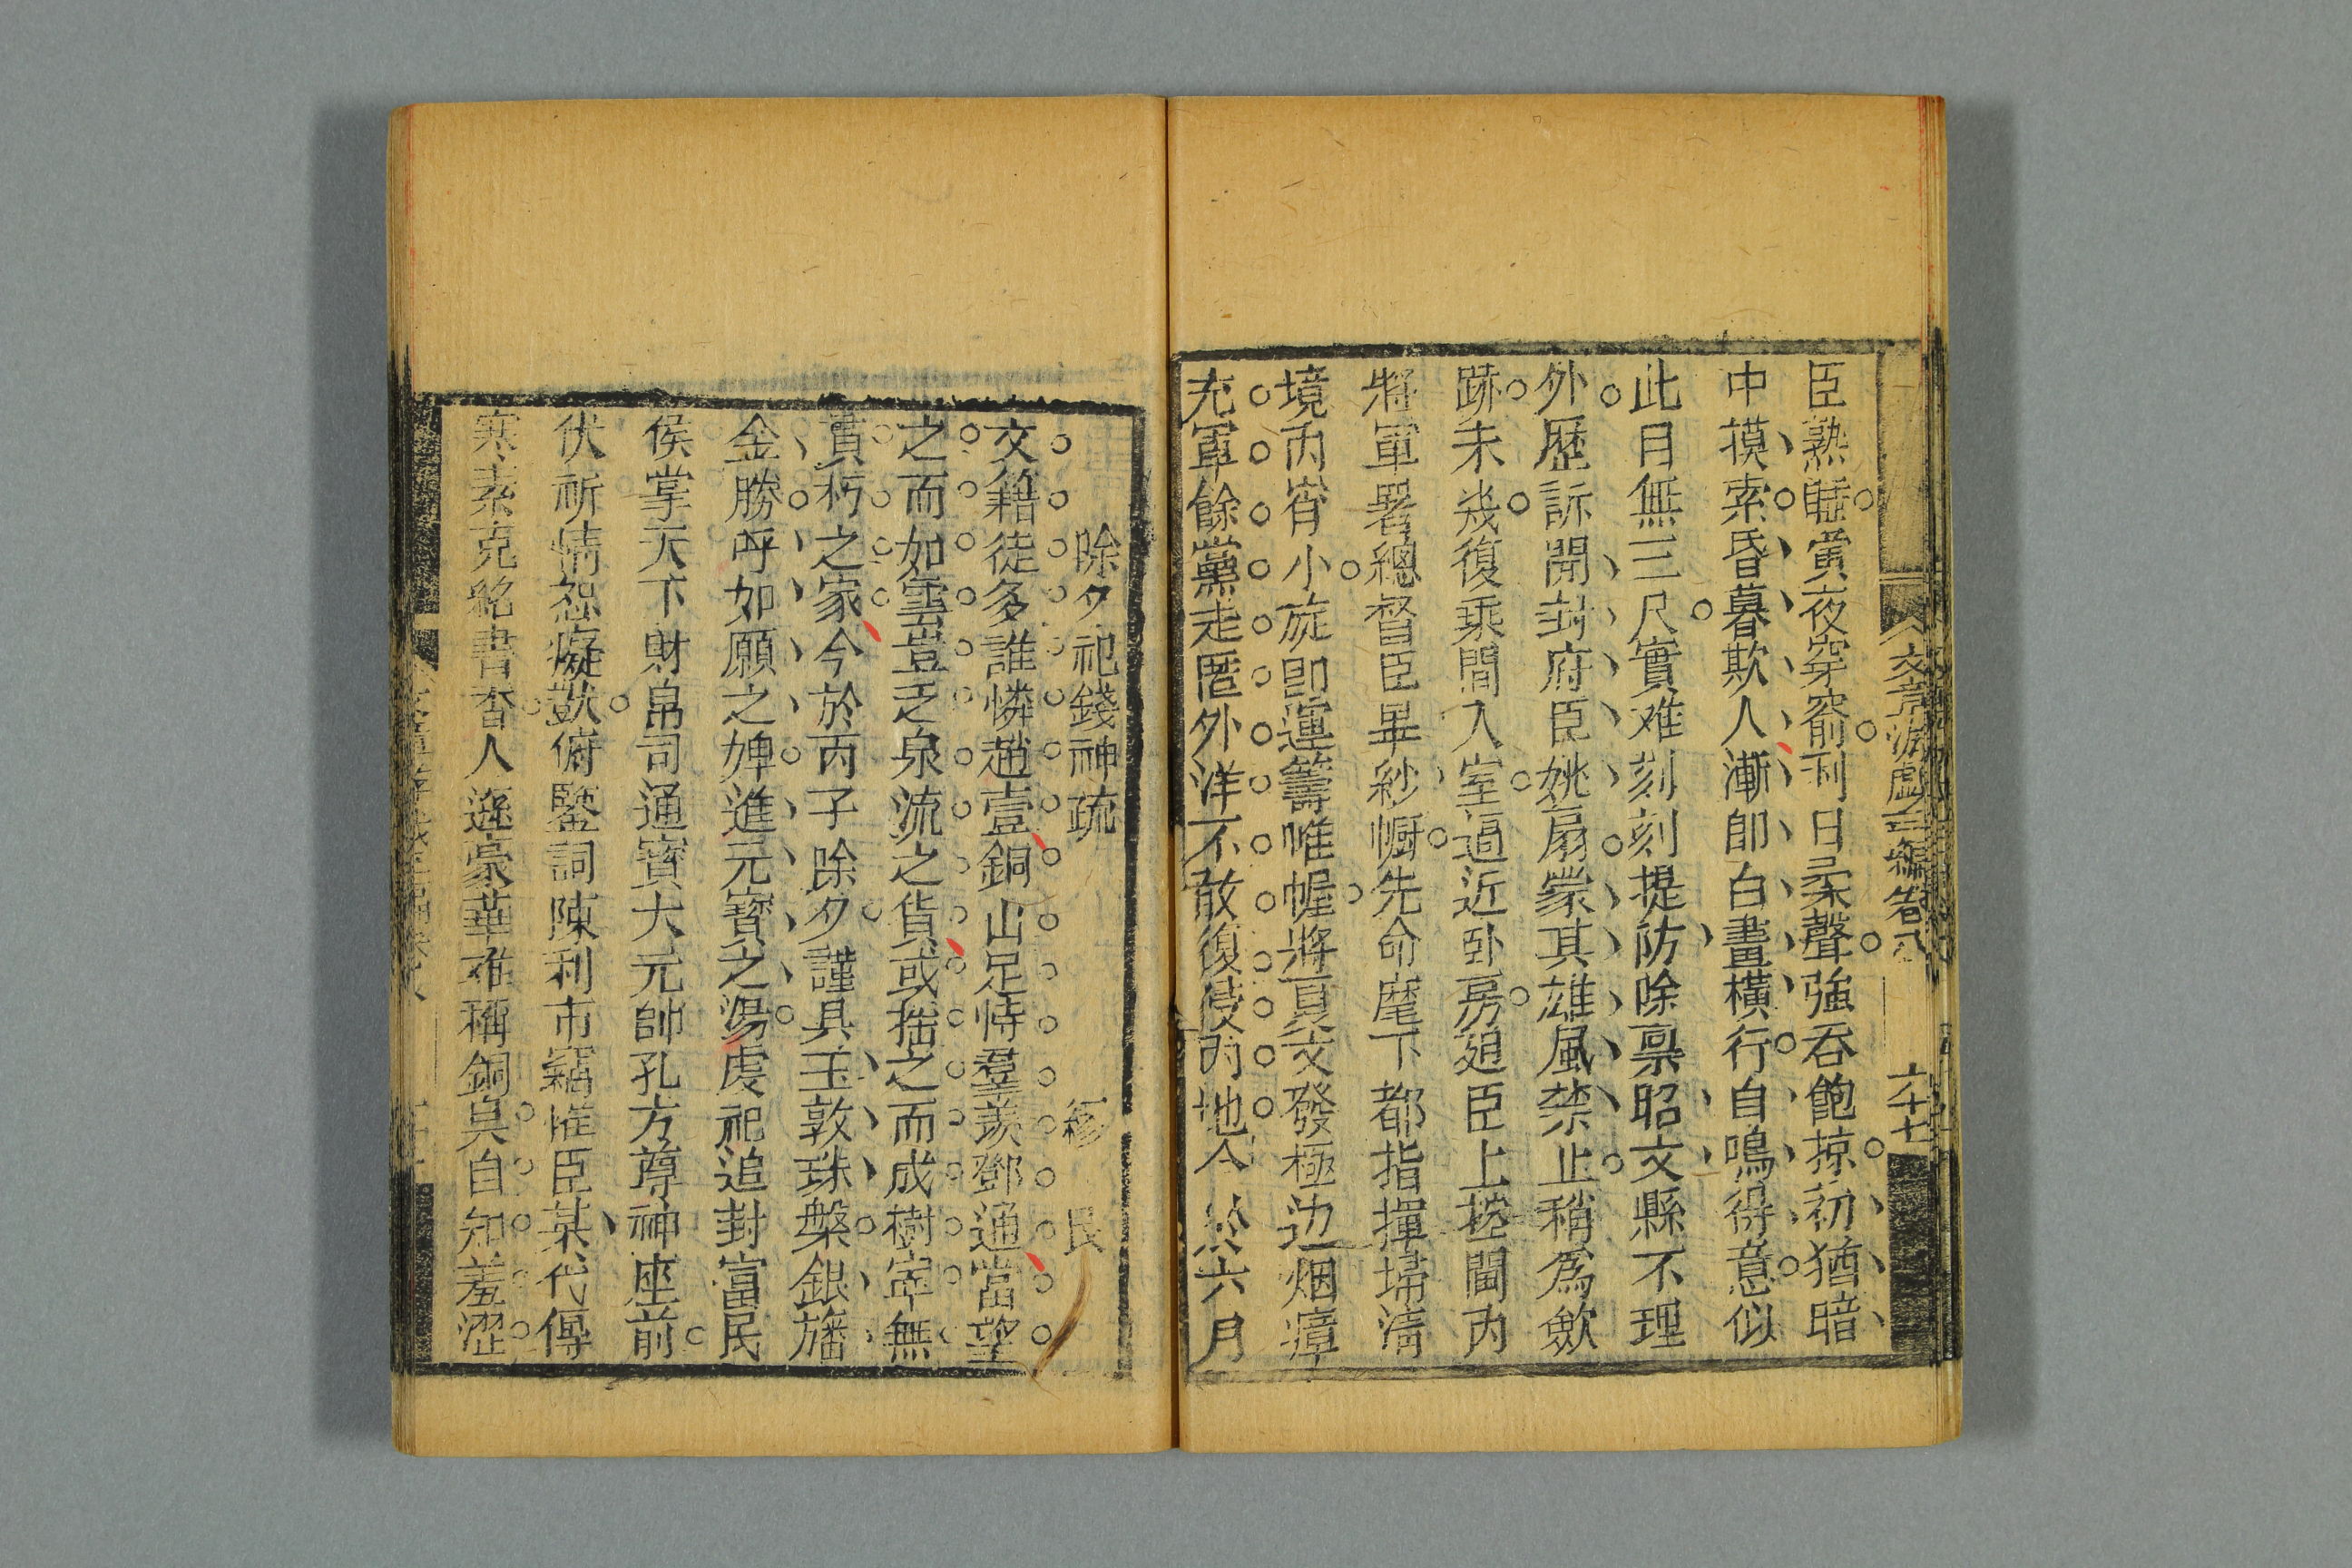 文章游戲三編卷八
六十七
臣熟睡黃夜穿窬利日柔聲強吞飽掠初猶暗
中摸索昏暮欺人漸卽白晝橫行自鳴得意似
此目無三尺實难刻刻提防除禀昭文縣不理
外歷訴開封府臣姚扇蒙其雄風禁止稍爲歛
跡未幾復乘間入室逼近卧房廹臣上控閫内
將軍署總督臣畢紗幮先命麾下都指揮埽清
境内宵小旋卽運籌帷幄將夏交發極边烟瘴
充軍餘黨走匿外洋不敢復侵内地今於六月
除夕祀錢神疏
繆 艮
文籍徒多誰憐趙壹銅山足恃羣羨鄧通當望
之而如雲豈乏泉流之貨或揺之而成樹寧無
貫朽之家今於丙子除夕謹具玉敦珠槃銀旛
金勝呼如願之婢進元寶之湯虔祀追封富民
侯掌天下財帛司通寶大元帥孔方尊神座前
伏祈情恕癡獃俯鑒詞陳利市竊惟臣某代傳
寒素克紹書香人遜豪華难稱銅臭自知羞澀